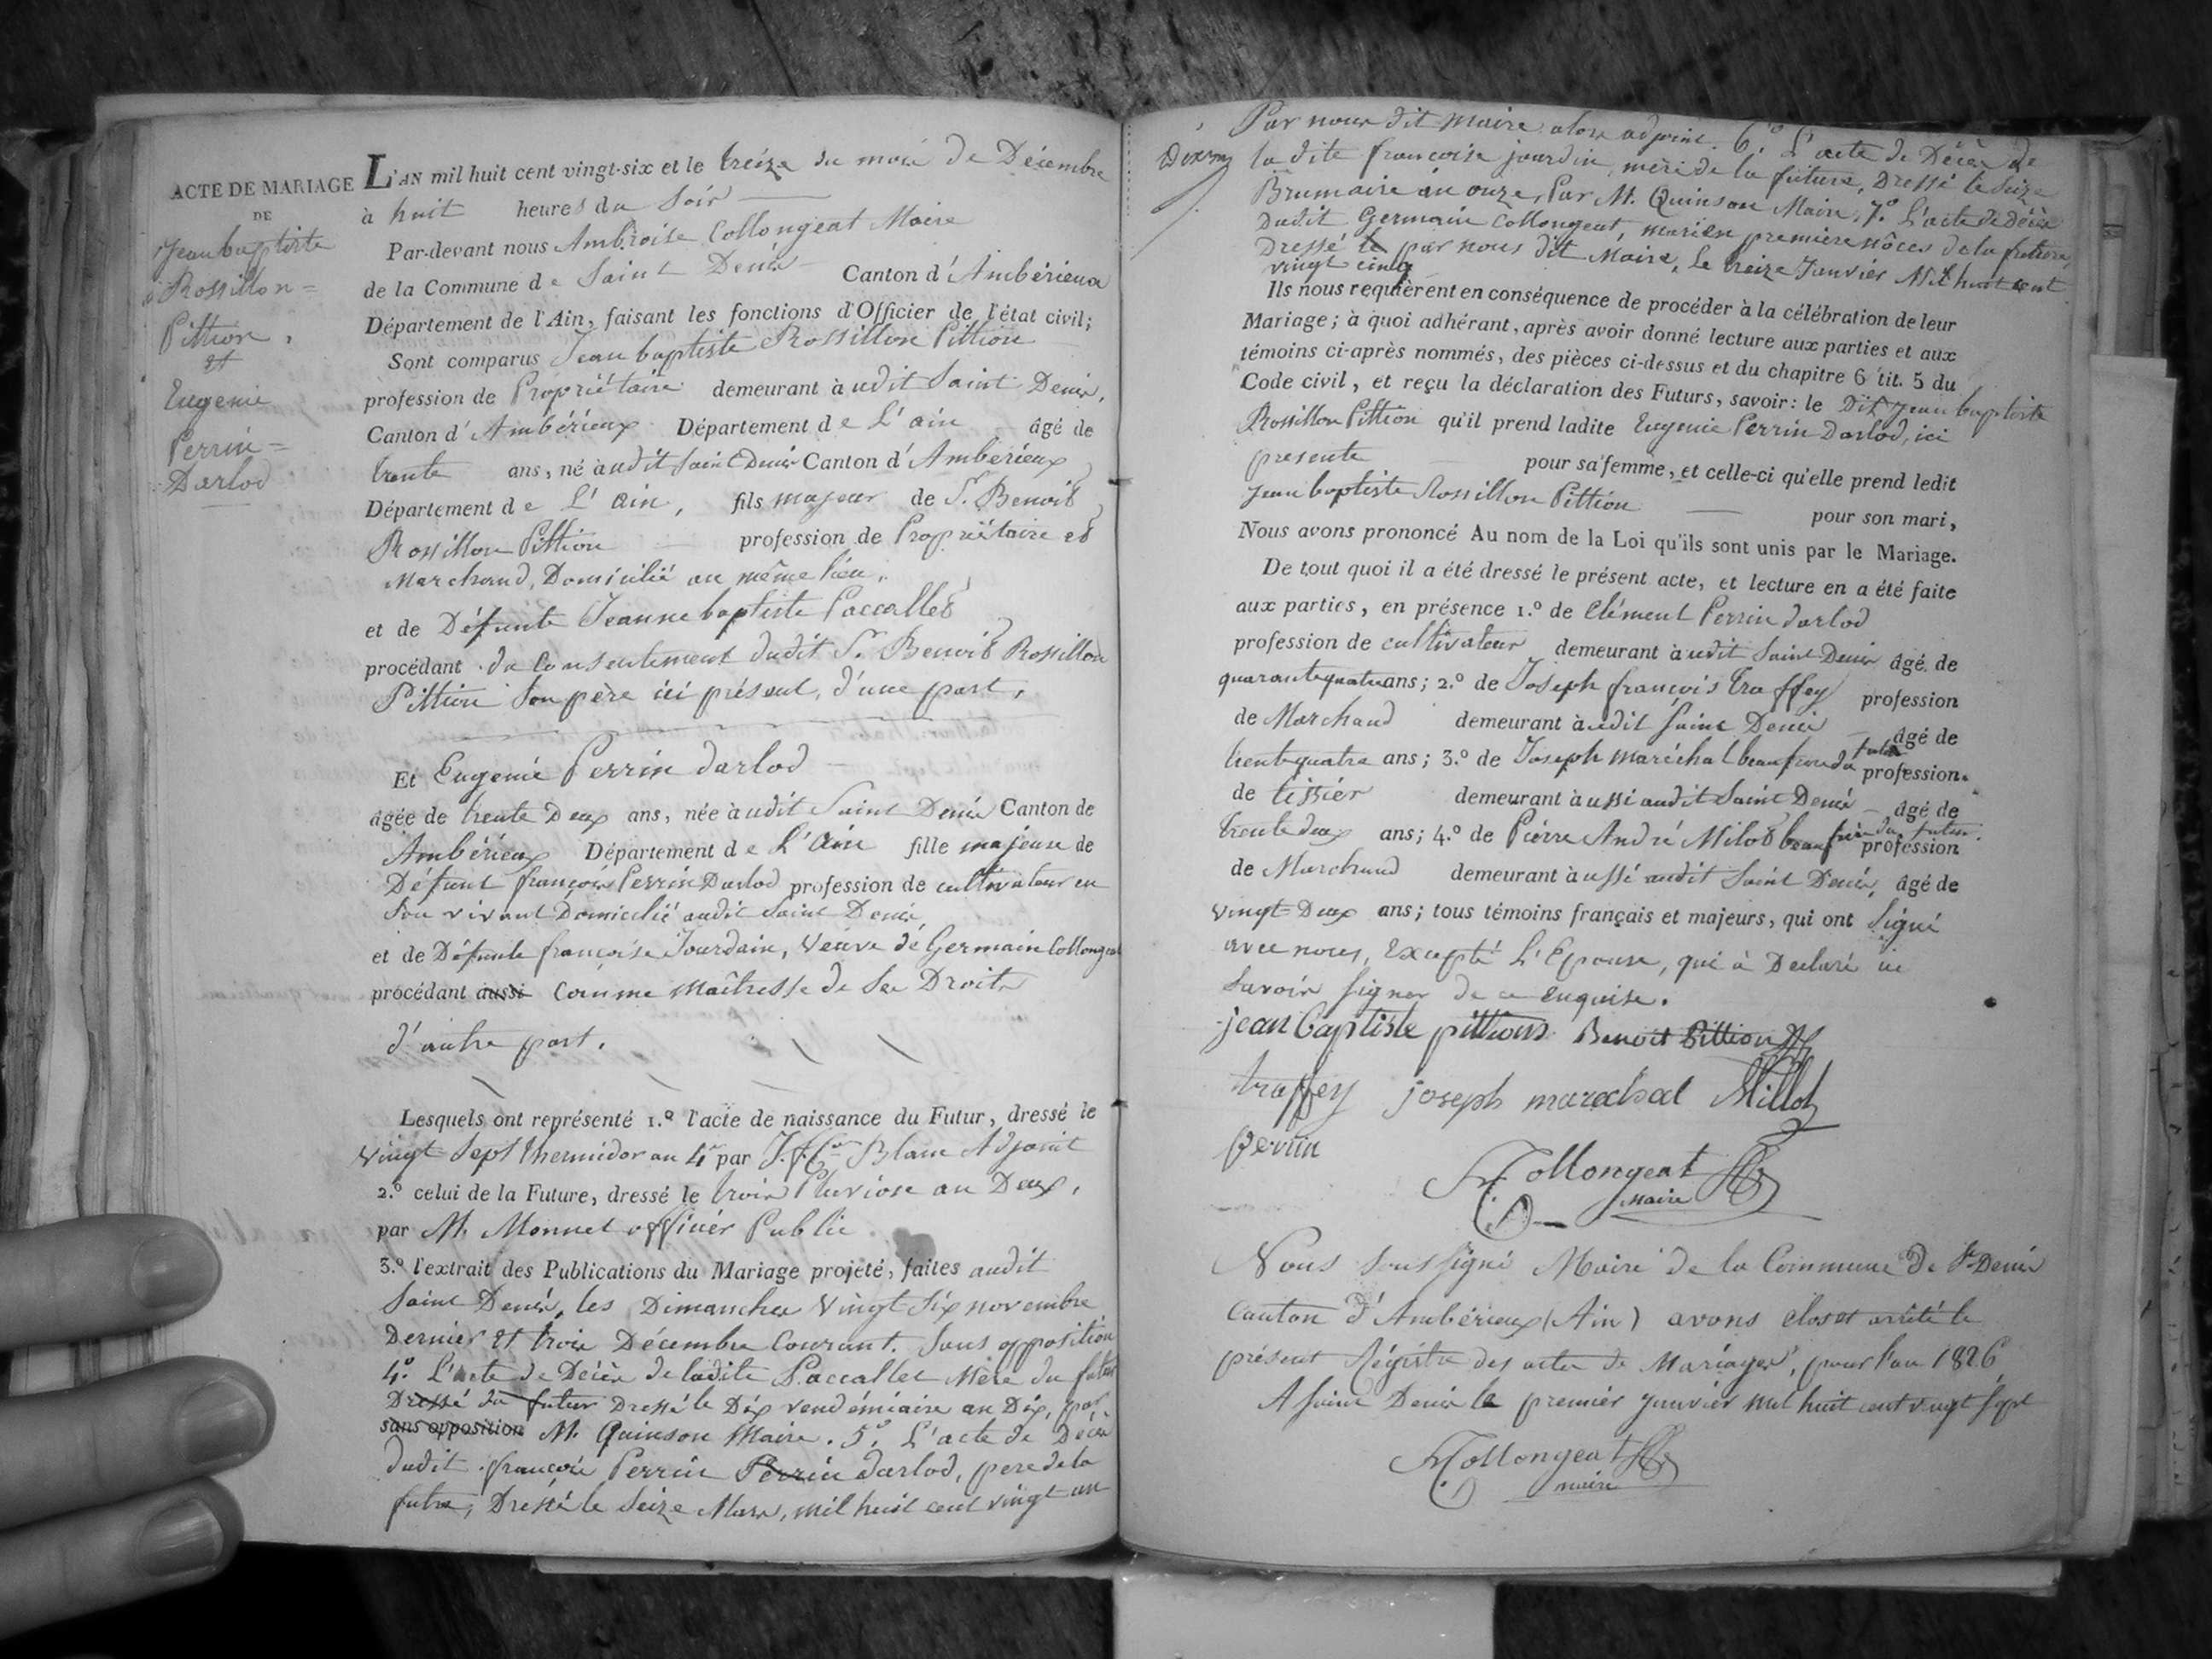 ACTE DE MARIAGE
DE
Jean baptiste
Rossillon=
Pittion,
et
Eugenie
Perrin=
Darlod
L'AN mil huit cent vingt-six et le treize du mois de Décembre
à huit heures du soir
Par-devant nous Ambroise Collongeat Maire
de la Commune de Saint Denis Canton d'Ambérieux
Département de l'Ain, faisant les fonctions d'Officier de l'état civil;
Sont comparus Jean baptiste Rossillon Pittion
profession de Propriétaire demeurant audit Saint Denis,
Canton d'Ambérieux Département de L'ain âgé de
trente ans, né audit Saint Denis Canton d'Ambérieux
Département de L'ain, fils majeur de Sr. Benoit
Rossillon Pittion profession de Propriétaire et
Marchand, Domicilié au même lieu,
et de Défunte Jeanne baptiste Paccallet
procédant du Consentement dudit Sr. Benoit Rossillon
Pittion Son père ici présent, d'une part,
Et Eugenie Perrin darlod
âgée de trente Deux ans, née audit Saint Denis Canton de
Ambérieux Département de L'Ain fille majeure de
Défunt françois Perrin Darlod profession de cultivateur en
Son vivant Domicilié audit Saint Denis
et de Défunte françoise Jourdain, Veuve de Germain Collongeat
procédant aussi Comme Maîtresse de Ses Droits
d'autre part.
Lesquels ont représenté 1.º l'acte de naissance du Futur, dressé le
Vingt Sept thermidor an 4 par Blanc Adjoint
2.º celui de la Future, dressé le trois Pluviose an Deux,
par M. Monnet officier Public
3.º l'extrait des Publications du Mariage projeté, faites audit
Saint Denis, les Dimanches Vingt Six novembre
Dernier et trois Décembre Courant. Sans opposition
4º. L'Acte de Décès de ladite Paccallet Mère du futur
Dressé du futur Dressé le Dix vendémiaire an Dix, par
sans opposition M. Quinson Maire. 5º. L'acte de Décès
dudit françois Perrin Perrin darlod, pere de la
future, Dressé le Seize Mars, mil huit cent vingt un
Par nous dit Maire alors adjoint. 6º. L'acte de Décès de
la dite francoise jourdin, mère de la future, Dressé le Seize
Brumaire an onze, Par M. Quinson Maire, 7º. L'acte de Décès
Dudit Germain Collongeat, mari en premiere nôces de la future,
Dressé le par nous dit Maire, le treize Janvier Mil huit cent
vingt cinq
Ils nous requièrent en conséquence de procéder à la célébration de leur
Mariage; à quoi adhérant, après avoir donné lecture aux parties et aux
témoins ci-après nommés, des pièces ci-dessus et du chapitre 6 tit. 5 du
Code civil, et reçu la déclaration des Futurs, savoir: le Dit Jean baptiste
Rossillon Pittion qu'il prend ladite Eugenie Perrin Darlod, ici
presente pour sa femme, et celle-ci qu'elle prend ledit
Jean baptiste Rossillon Pittion pour son mari,
Nous avons prononcé Au nom de la Loi qu'ils sont unis par le Mariage.
De tout quoi il a été dressé le présent acte, et lecture en a été faite
aux parties, en présence 1.º de Clément Perrin darlod
profession de cultivateur demeurant audit Saint Denis âgé de
quarante quatre ans; 2.º de Joseph françois traffey profession
de Marchand demeurant audit Saint Denis âgé de
trente quatre ans; 3.º de Joseph maréchal beaufrere du futur profession
de tissier demeurant aussi audit Saint Denis âgé de
trente deux ans; 4.º de Pierre André Milot beaufrère du futur profession
de Marchand demeurant aussi audit Saint Denis, âgé de
vingt Deux ans; tous témoins français et majeurs, qui ont Signé
avec nous, Excepté L'Epouse, qui à Declaré ne
Savoir Signer de ce enquise.
jean Captiste pittion Benoit Pittion
traffey joseph marechal Millot
perrin
Collongeat
Maire
Nous Soussigné Maire de la Commune de St Denis
Canton d'Ambérieux (Ain) avons clos et arrêté le
présent Régistre des actes de Mariages, pour l'an 1826
A Saint Denis le premier janvier mil huit cent vingt Sept
Collongeat
maire